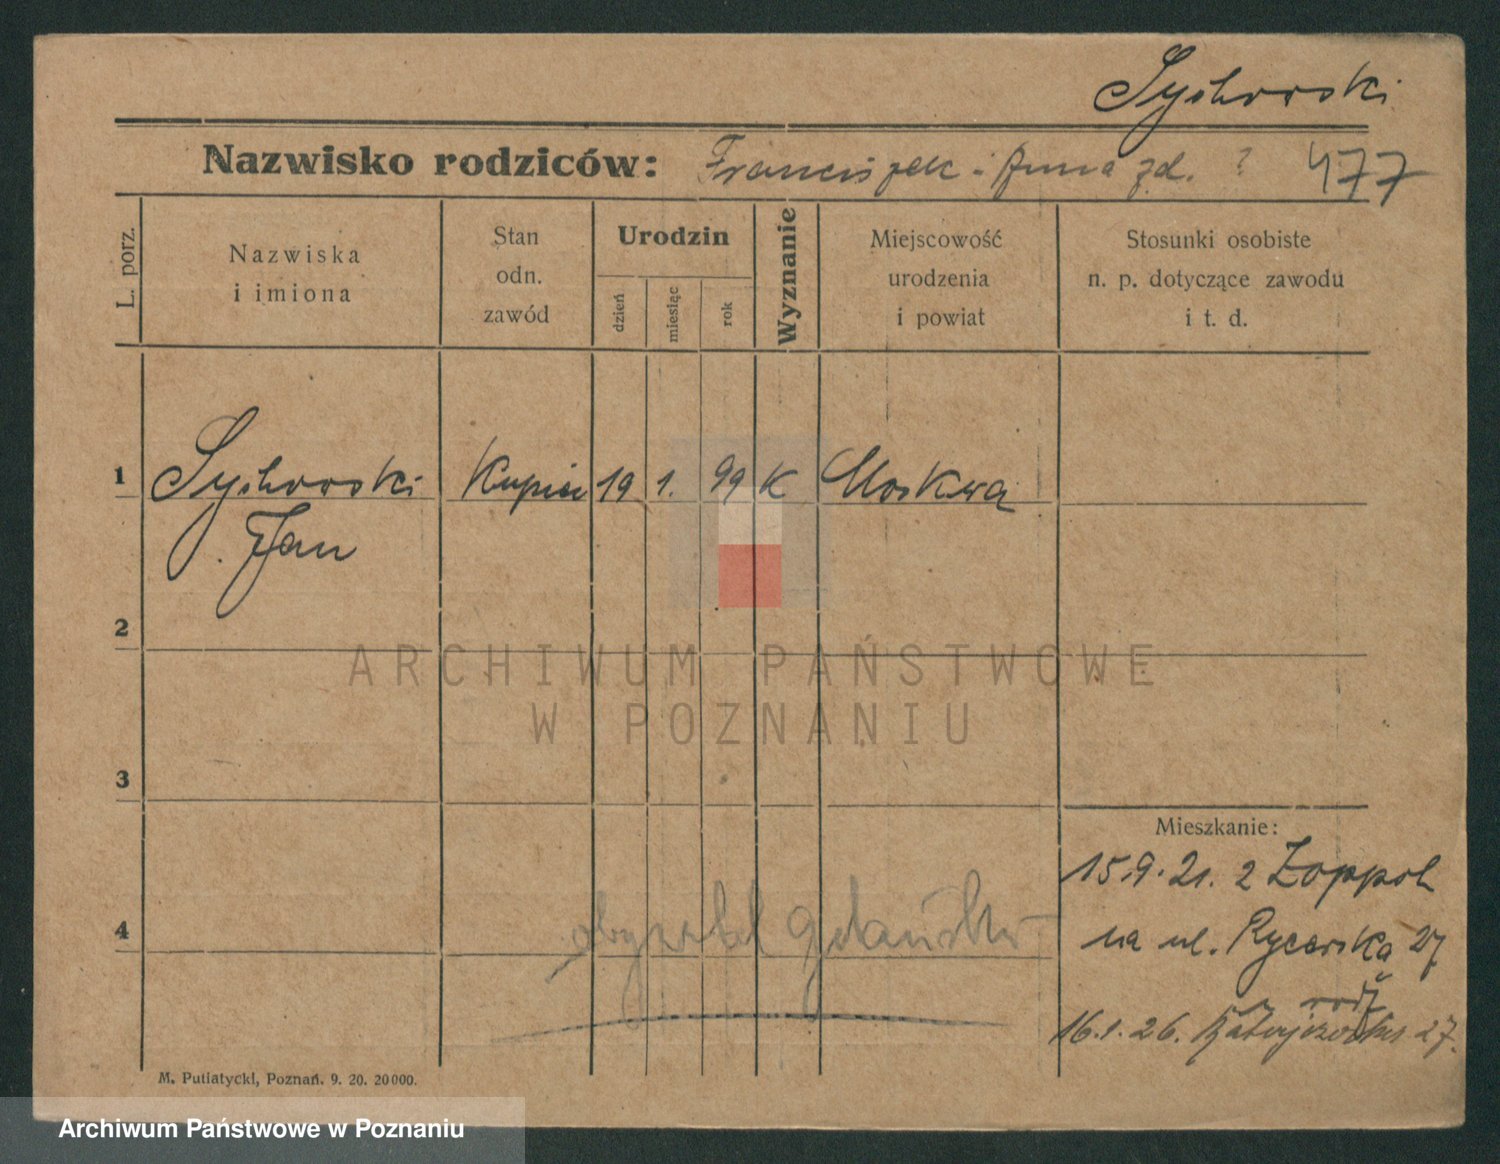 Sychowski
Nazwisko rodziców: Franciszek i Anna zd. ? 477
L. porz.
Nazwiska
i imiona
Stan
odn.
zawód
Urodzin
dzień
miesiąc
rok
Wyznanie
Miejscowość
urodzenia
i powiat
Stosunki osobiste
n. p. dotyczące zawodu
i t. d.
1 Sychowski Kupiec 19 1. 99 K Moskwa
Jan
2
ARCHIWUM PAŃSTWOWE
W POZNANIU
3
Mieszkanie:
15.9.21. z Zoppot
4 obywatel Gdański
na ul. Rycerska 27
16.1.26. 27.
M. Putiatycki, Poznań. 9. 20. 20000.
Archiwum Państwowe w Poznaniu